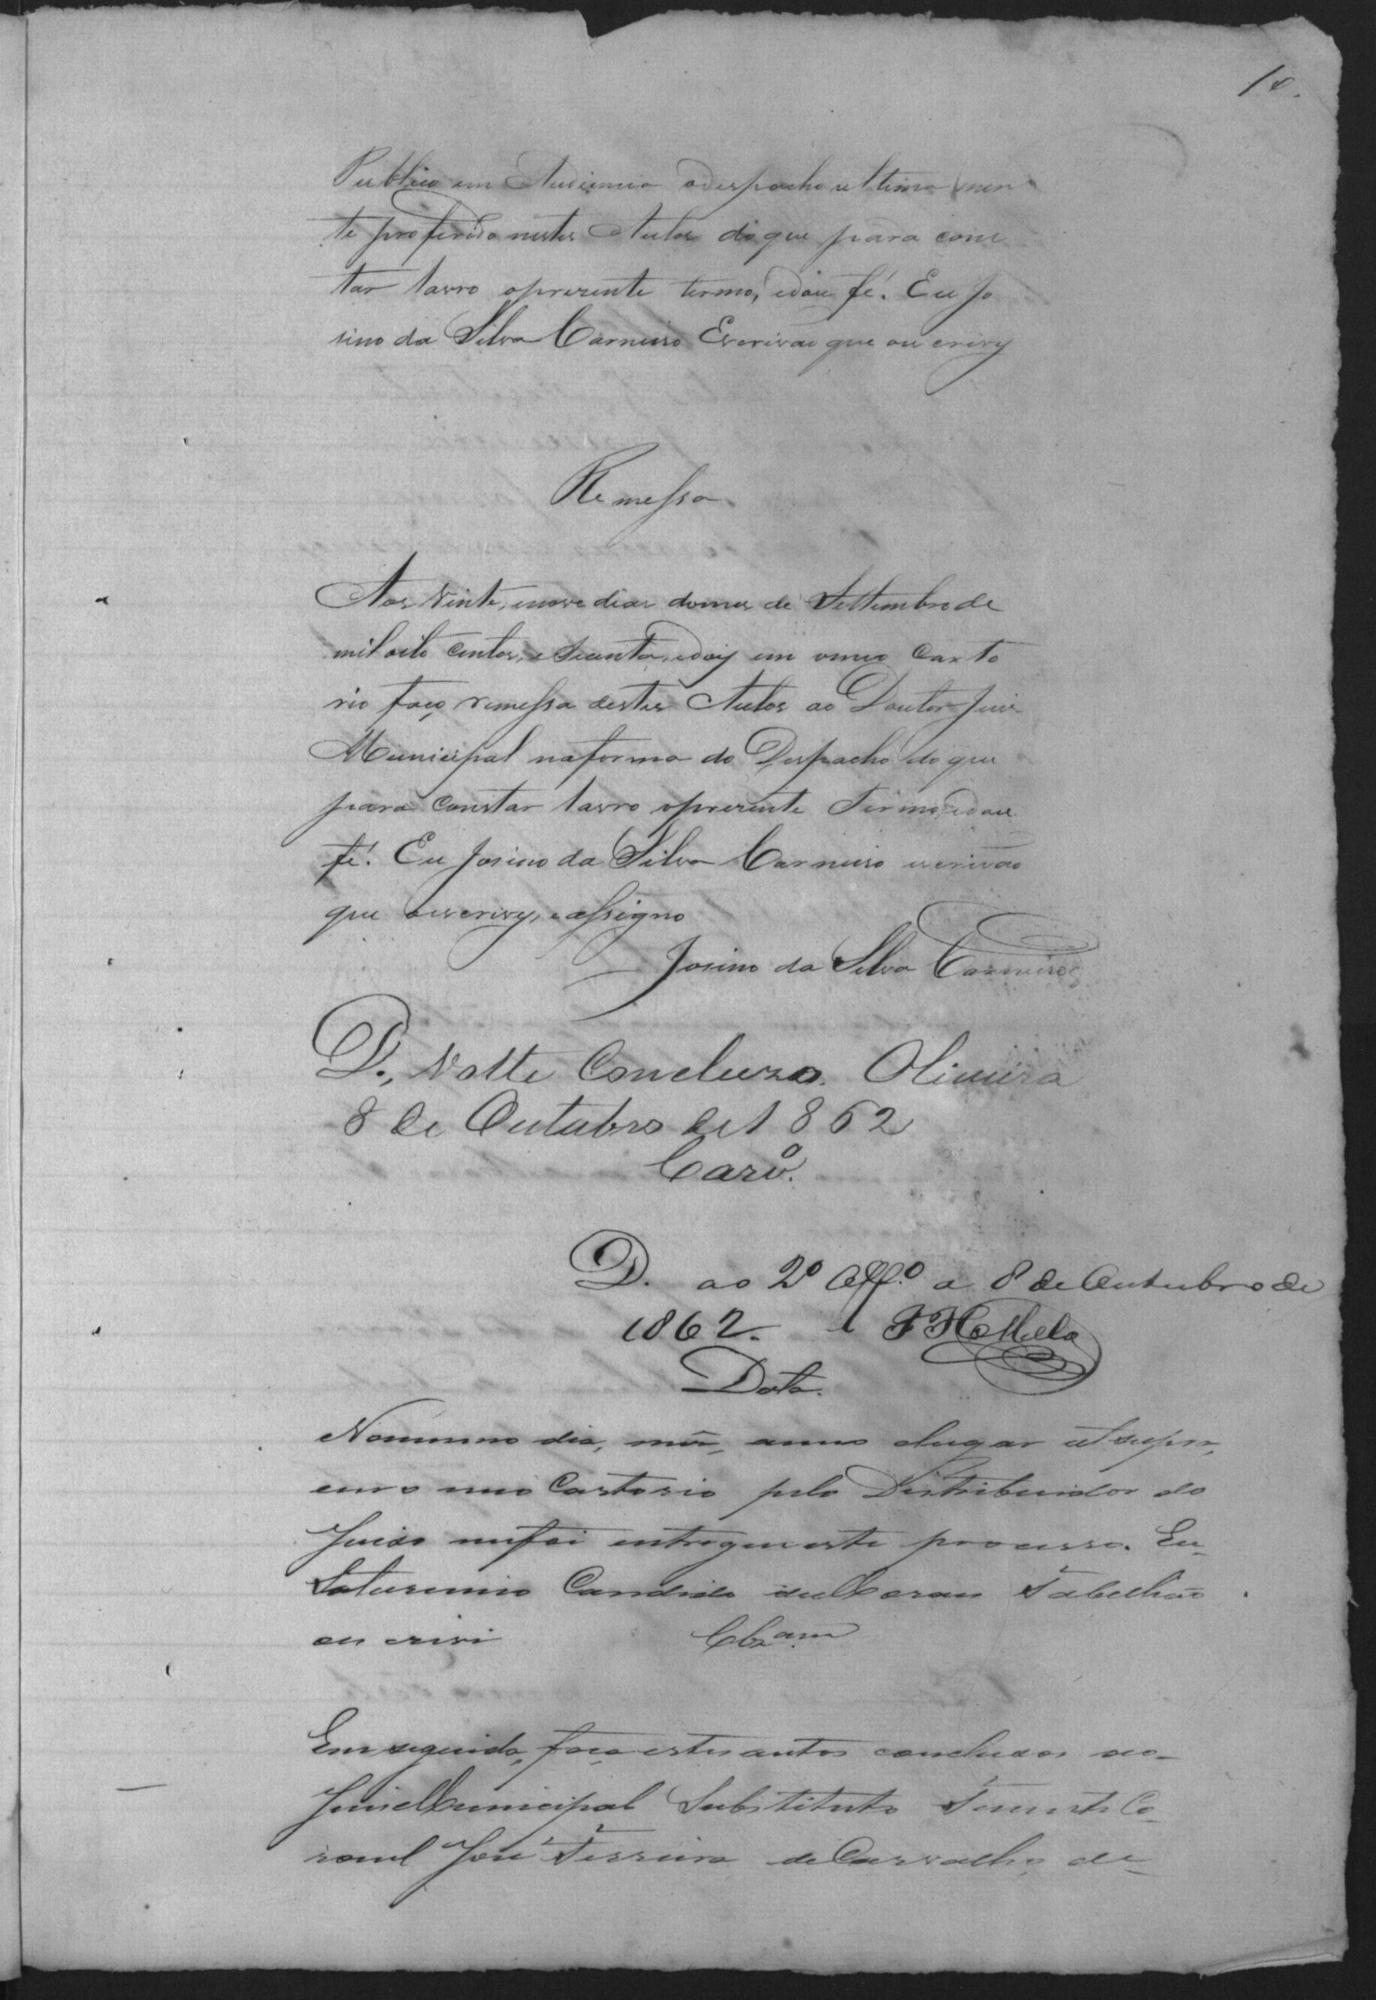 10.
Publico em Audiencia o despacho ultimamen
te proferido nestes Autos do que para cons
tar lavro o prezente termo, e dou fé. Eu Jo
sino da Silva Carneiro Escrivão que o escrivy
Remessa
Aos vinte, e nove dias do mes de Settembro de
mil oito centos, e secenta, e doiz em o meo Carto
rio faço remessa destes Autos ao Doutor Juiz
Municipal na forma do Despacho do que
para constar lavro o prezente Termo, e dou
fé. Eu Josino da Silva Carneiro escrivão
que o escrevy, e assigno
Josino da Silva Carneiro
D., Volte Concluzo. Oliveira
8 de Outubro de 1862
D. ao 2º Off.º a 8 de Outubro de
1862. Mello
Data.
No mesmo dia, mez, anno e lugar ut supra,
em o meo Cartorio pelo Distribuidor do
Juizo me foi entregue este processo. Eu
Saturnino Candido de Moraes Tabellião
o escrivi
Clz.am
Em seguida, faço estes autos concluzos ao
Juiz Municipal Substituto Tenente Co
ronel José Ferreira de Carvalho, de